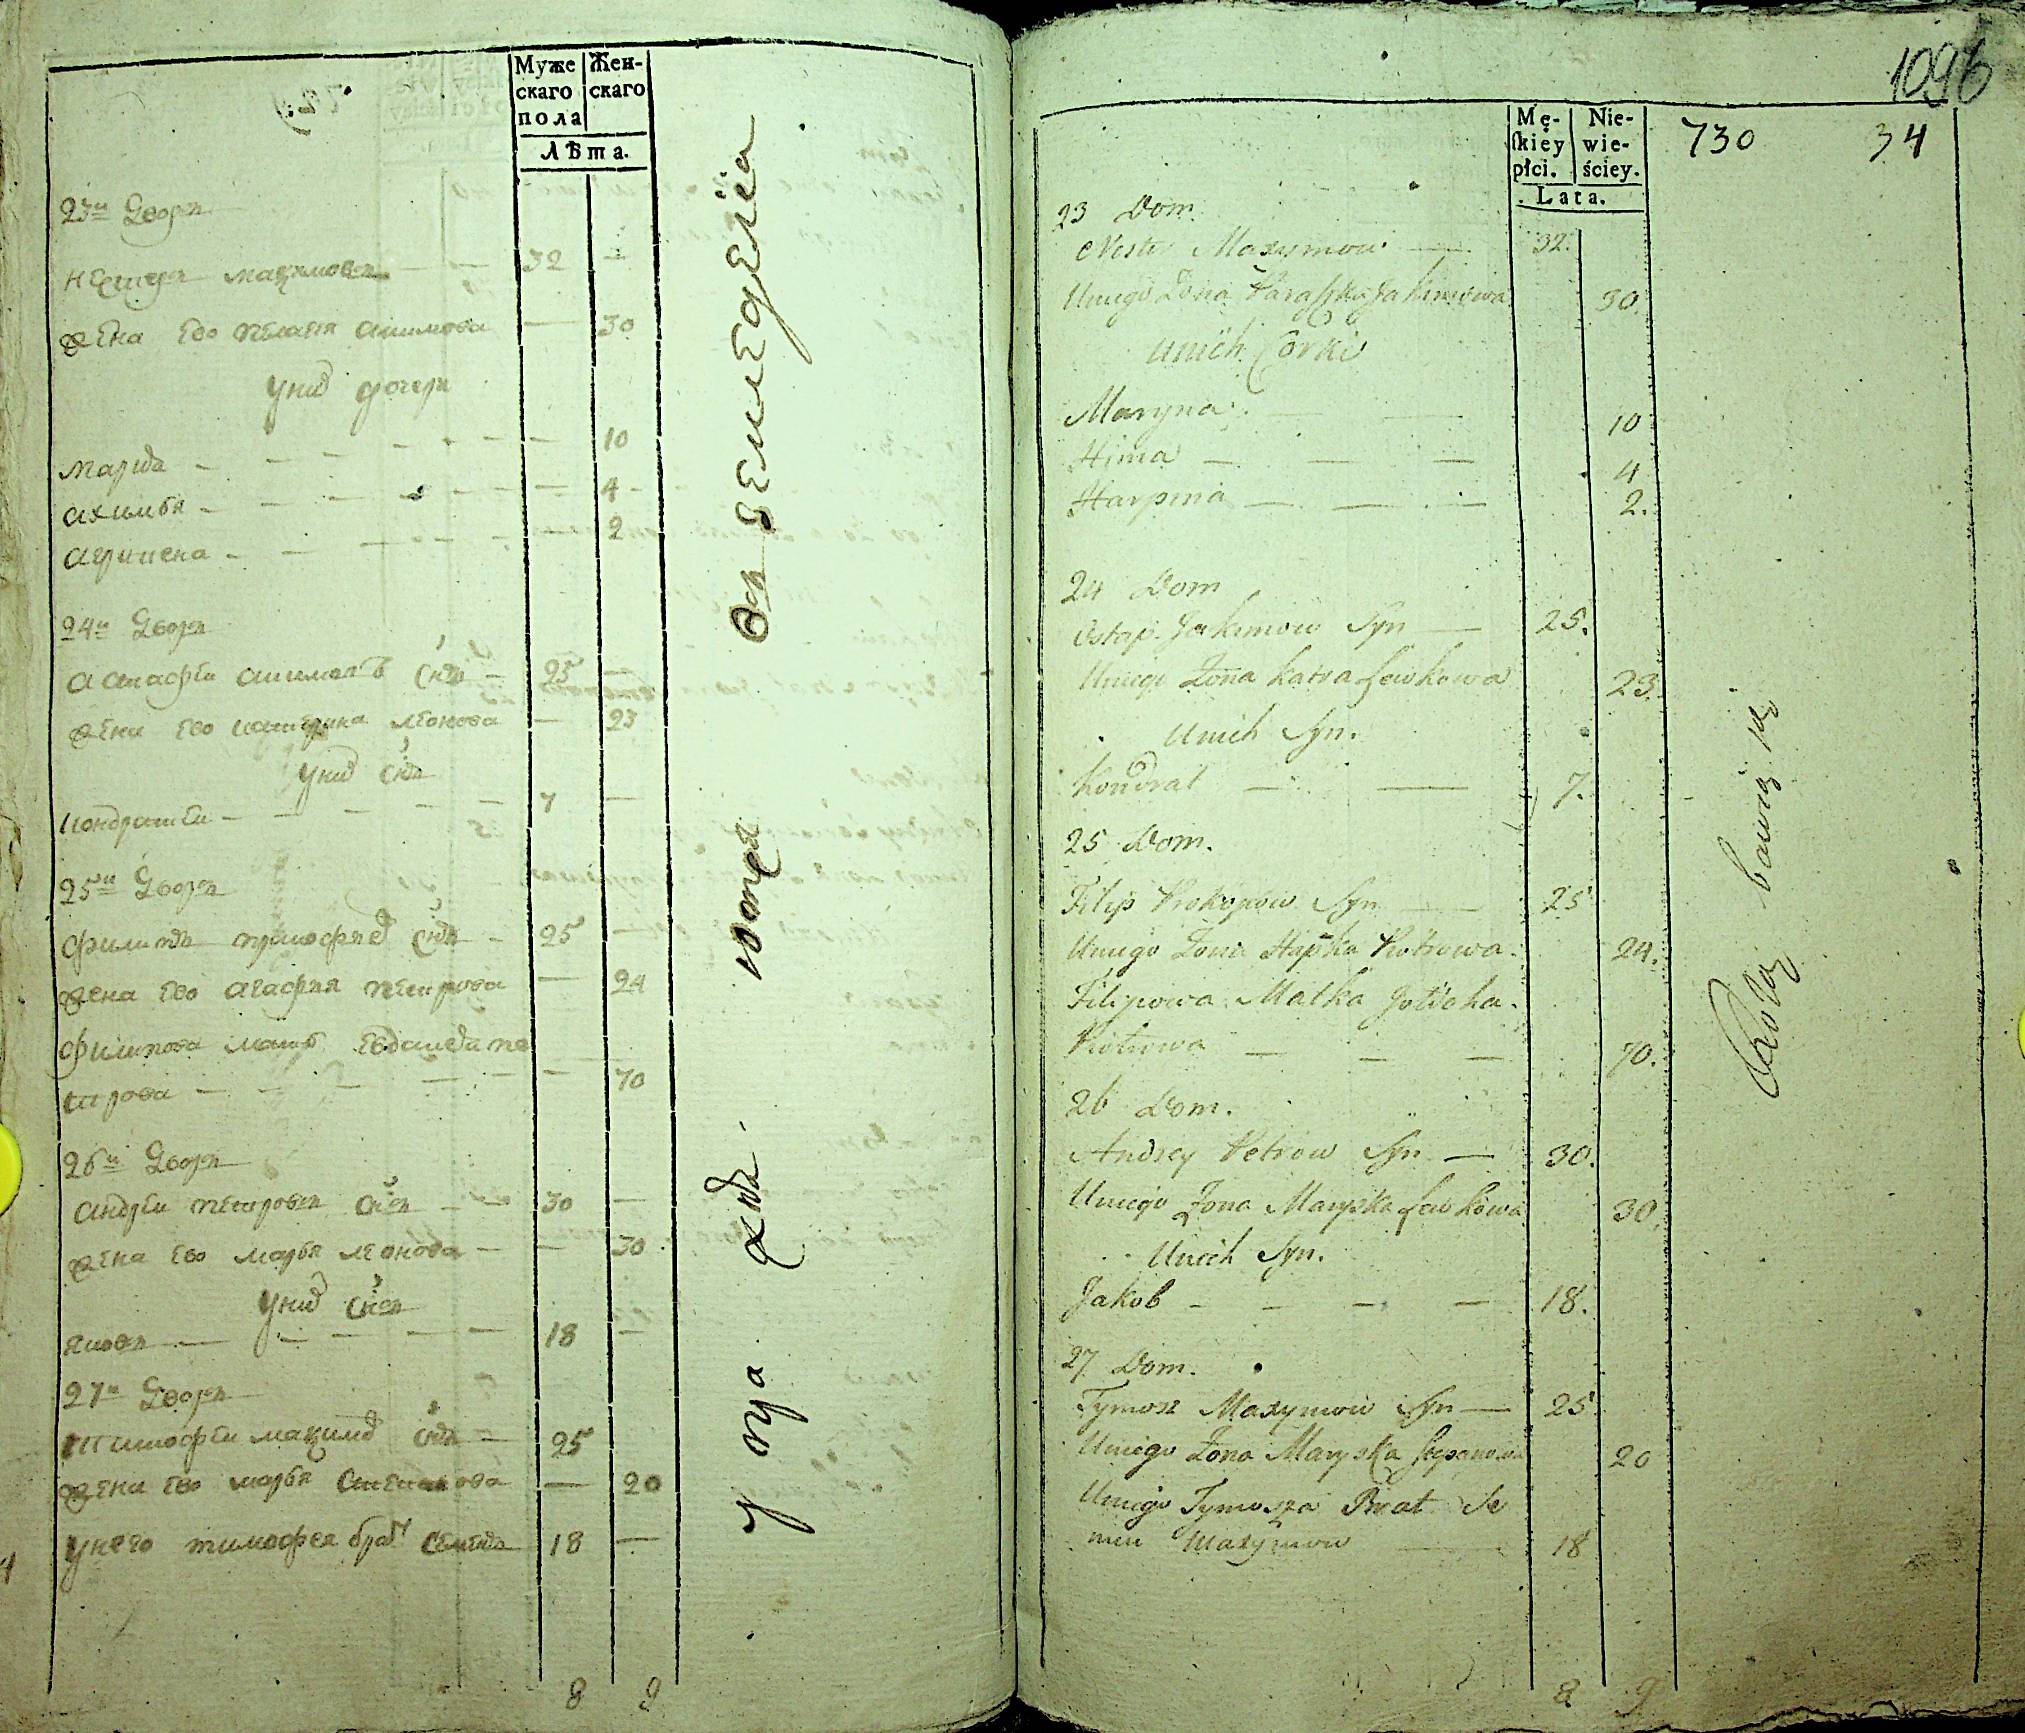 Муже
скаго
пола
Жен-
скаго
Лѣта.
23й Дворъ
Нестеръ Максимовъ — 32 —
жена Ево Пелагѣя Акимова — 30
у них дочери
Марья — 10
Акимья — 4
Агрипена — 2
24й Дворъ
Астафей Акимовъ снъ — 25 —
жена Ево Катерина Леонова — 23
у них снъ
Кондратей — 7 —
25й Дворъ
Филипъ снъ — 25 —
жена Ево Агафья Петрова — 24
Филипова мать Пе
трова — 70
26й Дворъ
Андрей Петровъ снъ — 30 —
жена Ево Марья Леонова — 30
у них снъ
Яковъ — 18 —
27й Дворъ
Тимофей Максимов снъ — 25
жена Ево Марья Степанова — 20
у него Тимофея брат Семенъ 18 —
8 9
1096
Mę-
skiey
płci.
Nie-
wie-
ściey.
Lata.
730 34
23 Dom
Nester Maxymow — 32.
Uniego Żona Paraska Jakimowa 30.
Unich Corki
Maryna — 10
Hima — 4
Harpina — 2.
24 Dom
Ostap Jakimow Syn — 25.
Uniego Żona Katra Lewkowa 23
Unich Syn.
Kondrat — 7.
25 Dom.
Filip Prokopow Syn — 25
Uniego Żona Hapka Piotrowa. 24.
Filipowa Matka
Piotrowa — 70.
26 Dom.
Andrey Petrow Syn — 30.
Uniego Żona Maryska Lewkowa 30
Unich Syn.
Jakob — 18.
27 Dom.
Tymosz Maxymow Syn — 25
Uniego Żona Maryska Stepanowa 20
Uniego Tymosza Brat Se
men Maxymow — 18
8 9